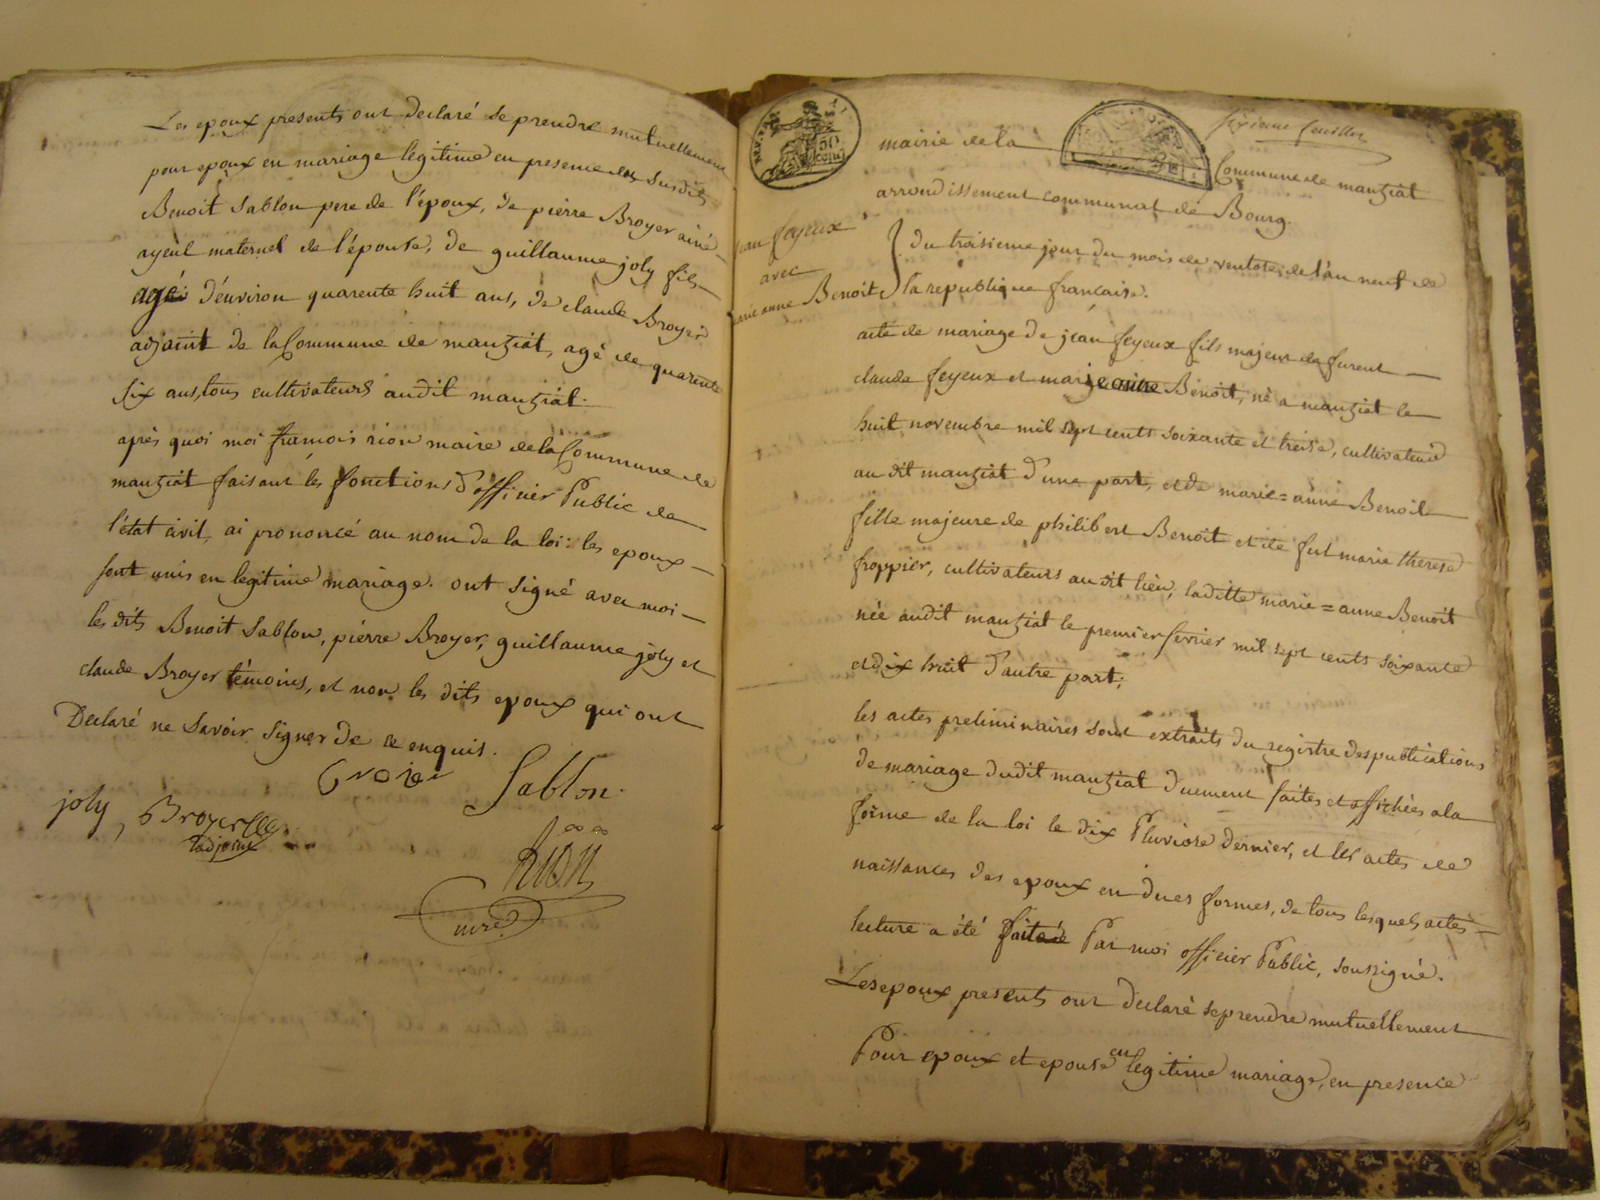 Les epoux presents ont declaré se prendre mutuellement
pour epoux en mariage legitime en presence des susdits
Benoit Sablon pere de l'époux, de pierre Broyer ainé
ayeul maternel de l'épouse, de guillaume joly fils
agé d'environ quarente huit ans, de claude Broyer
adjoint de la Commune de manziat, agé de quarente
six ans, tous cultivateurs audit manziat.
après quoi moi françois rion maire de la Commune de
manziat faisant les fonctions d'officier Public de
l'état civil, ai prononcé au nom de la loi: les epoux
sont unis en legitime mariage. ont signé avec moi
les dits Benoit Sablon, pierre Broyer, guillaume joly et
claude Broyer témoins, et non les dits epoux qui ont
Declaré ne savoir signer de ce enquis.
Sablon
joly, Broyer
adjoint
Rion
mre
50
mairie de la Commune de manziat
arrondissement communal de Bourg.
jean feyeux
avec
marie anne Benoit
du troisieme jour du mois de ventose, de l'an neuf de
la republique francaise.
acte de mariage de jean feyeux fils majeur de furent
claude feyeux et marie Benoit, né a manziat le
huit novembre mil sept cents soixante et treise, cultivateur
au dit manziat d'une part, et de marie=anne Benoit
fille majeure de philibert Benoit et de fut marie therese
froppier, cultivateurs au dit lieu, laditte marie=anne Benoit
née audit manziat le premier fevrier mil sept cents soixante
et dix huit d'autre part;
les actes preliminaires sont extraits du registre des publications
de mariage dudit manziat duement faites et affichées a la
forme de la loi le dix Pluviose dernier, et les actes de
naissances des epoux en dues formes, de tous lesquels actes
lecture a été faite Par moi officier Public, soussigné.
Les epoux presents ont declaré se prendre mutuellement
Pour epoux et epouse en legitime mariage, en presence